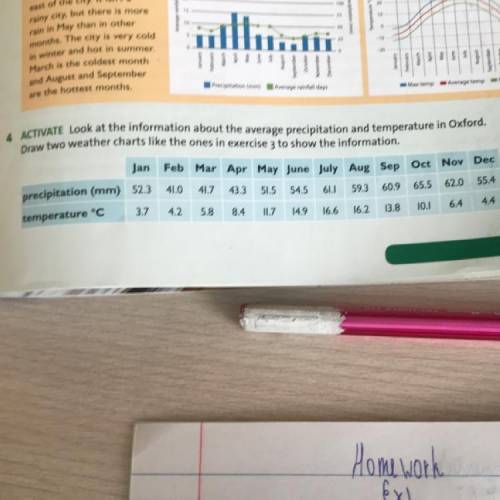 east of the city.
rainy city, but there is more
rain in May than in other
months. The city is very cold
in winter and hot in summer.
March is the coldest month
and August and September
are the hottest months.
January
March
April
May
June
July
August
Precipitation (mm) Average rainfall days
Max temp Average temp
4 ACTIVATE Look at the information about the average precipitation and temperature in Oxford.
Draw two weather charts like the ones in exercise 3 to show the information.
Jan Feb Mar Apr May June July Aug Sep Oct Nov Dec
precipitation (mm) 52.3 41.0 41.7 43.3 51.5 54.5 61.1 59.3 60.9 65.5 62.0 55.4
temperature °C 3.7 4.2 5.8 8.4 11.7 14.9 16.6 16.2 13.8 10.1 6.4 4.4
Homework
Ex1